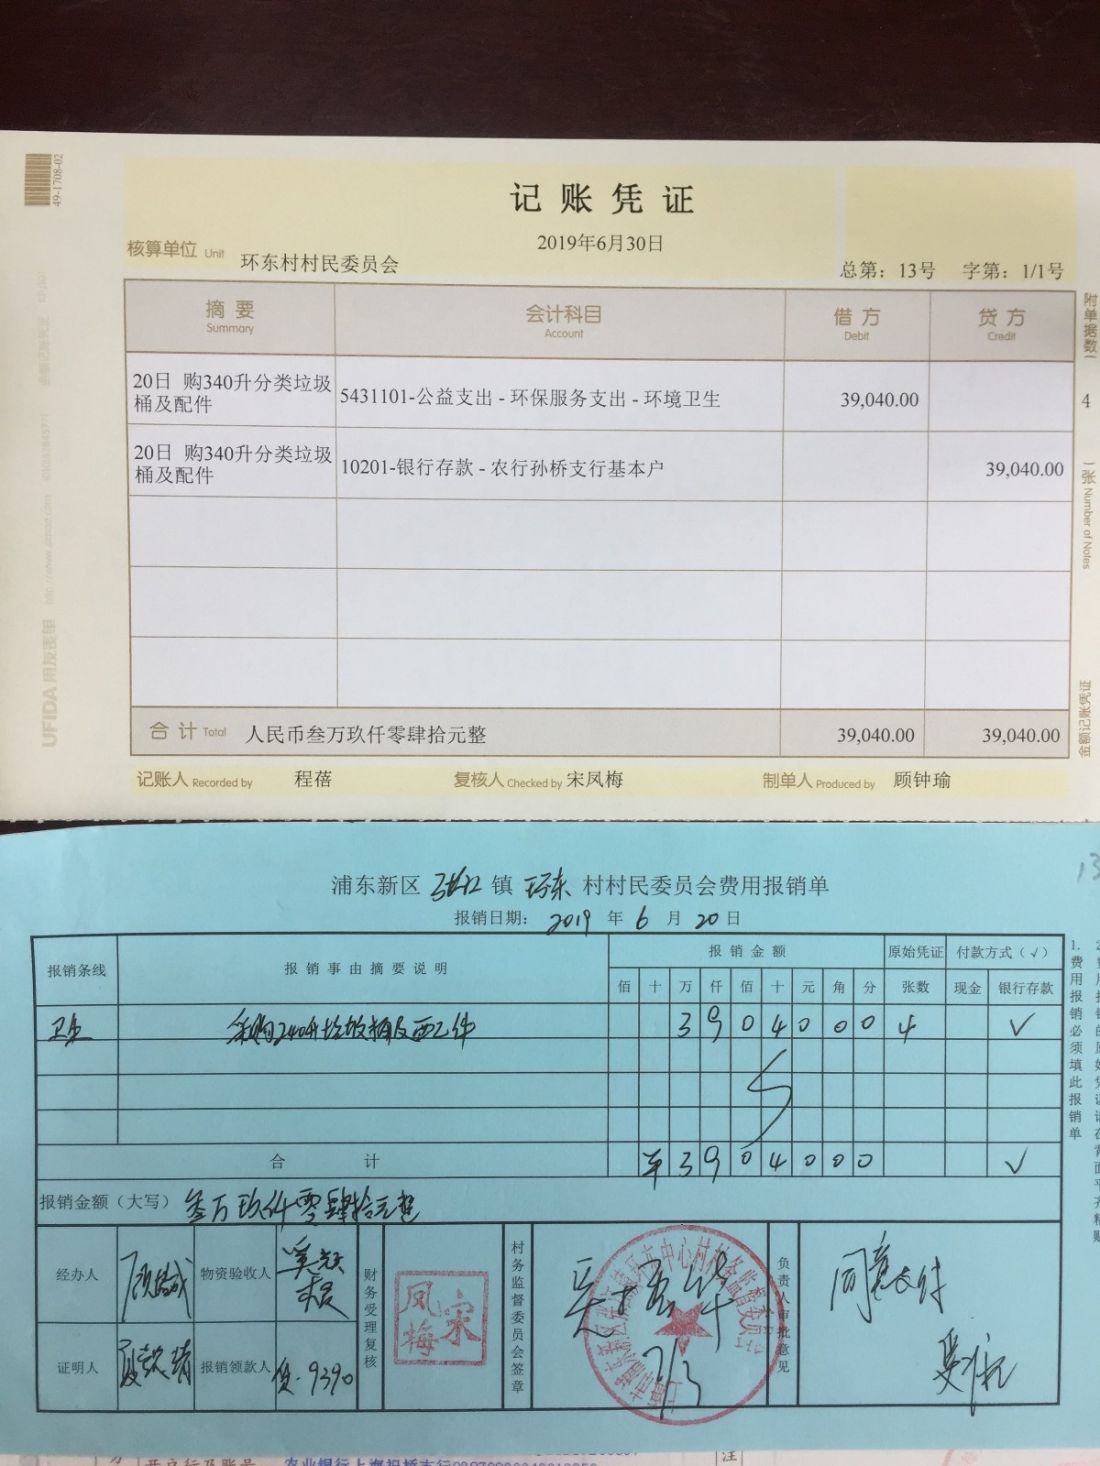 49-1708-02
记账凭证
2019年6月30日
核算单位 Unit 环东村村民委员会
总第：13号 字第：1/1号
摘要 Summary 会计科目 Account 借方 Debit 贷方 Credit
20日 购340升分类垃圾桶及配件 5431101-公益支出 - 环保服务支出 - 环境卫生 39,040.00
20日 购340升分类垃圾桶及配件 10201-银行存款 - 农行孙桥支行基本户 39,040.00
合计 Total 人民币叁万玖仟零肆拾元整 39,040.00 39,040.00
记账人 Recorded by 程蓓 复核人 Checked by 宋凤梅 制单人 Produced by 顾钟瑜
附单据数 4 张 Number of Notes
金额记账凭证
UFIDA 用友表单
13
浦东新区 张江 镇 环东 村村民委员会费用报销单
报销日期： 2019 年 6 月 20 日
报销条线 报销事由摘要说明 报销金额 原始凭证张数 付款方式（√）
佰 十 万 仟 佰 十 元 角 分 现金 银行存款
卫生 采购240升垃圾桶及配件 3 9 0 4 0 0 0 4 √
合计 ¥ 3 9 0 4 0 0 0 √
报销金额（大写） 叁万玖仟零肆拾元整
经办人 物资验收人 财务受理复核 凤梅宋 村务监督委员会签章 负责人审批意见 同意支付
证明人 报销领款人 9390
1.费用报销必须填此报销单
开户行及账号
注